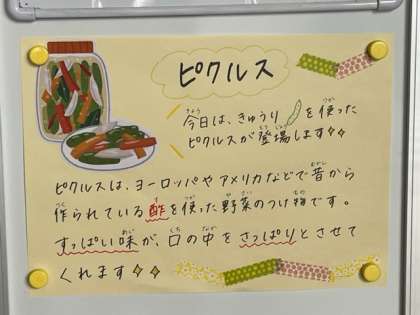 ピクルス
今日は、きゅうりを使った
ピクルスが登場します
ピクルスは、ヨーロッパやアメリカなどで昔から
作られている酢を使った野菜のつけ物です。
すっぱい味が、口の中をさっぱりとさせて
くれます